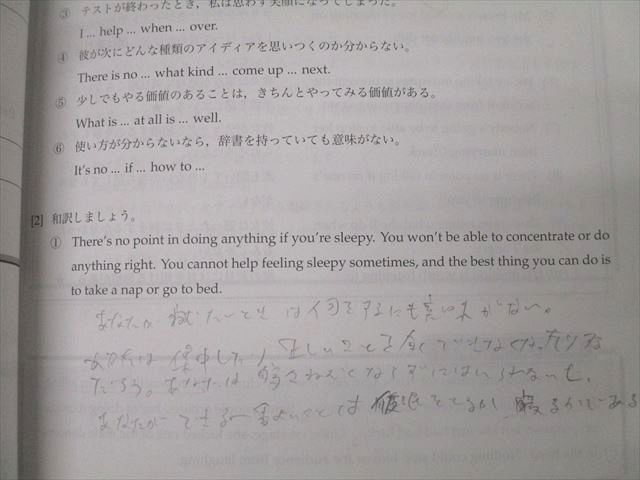 ③ テストが終わったとき，私は思わず笑顔になってしまった。
I ... help ... when ... over.
④ 彼が次にどんな種類のアイディアを思いつくのか分からない。
There is no ... what kind ... come up ... next.
⑤ 少しでもやる価値のあることは，きちんとやってみる価値がある。
What is ... at all is ... well.
⑥ 使い方が分からないなら，辞書を持っていても意味がない。
It's no ... if ... how to ...
[2] 和訳しましょう。
① There's no point in doing anything if you're sleepy. You won't be able to concentrate or do
anything right. You cannot help feeling sleepy sometimes, and the best thing you can do is
to take a nap or go to bed.
あなたがねむたいときは何をするにも意味がない。
あなたは集中したり、正しいことを
だろう。あなたは時々ねむくならずにはいられないし、
あなたができる一番よいことは仮眠をとるか寝るかである